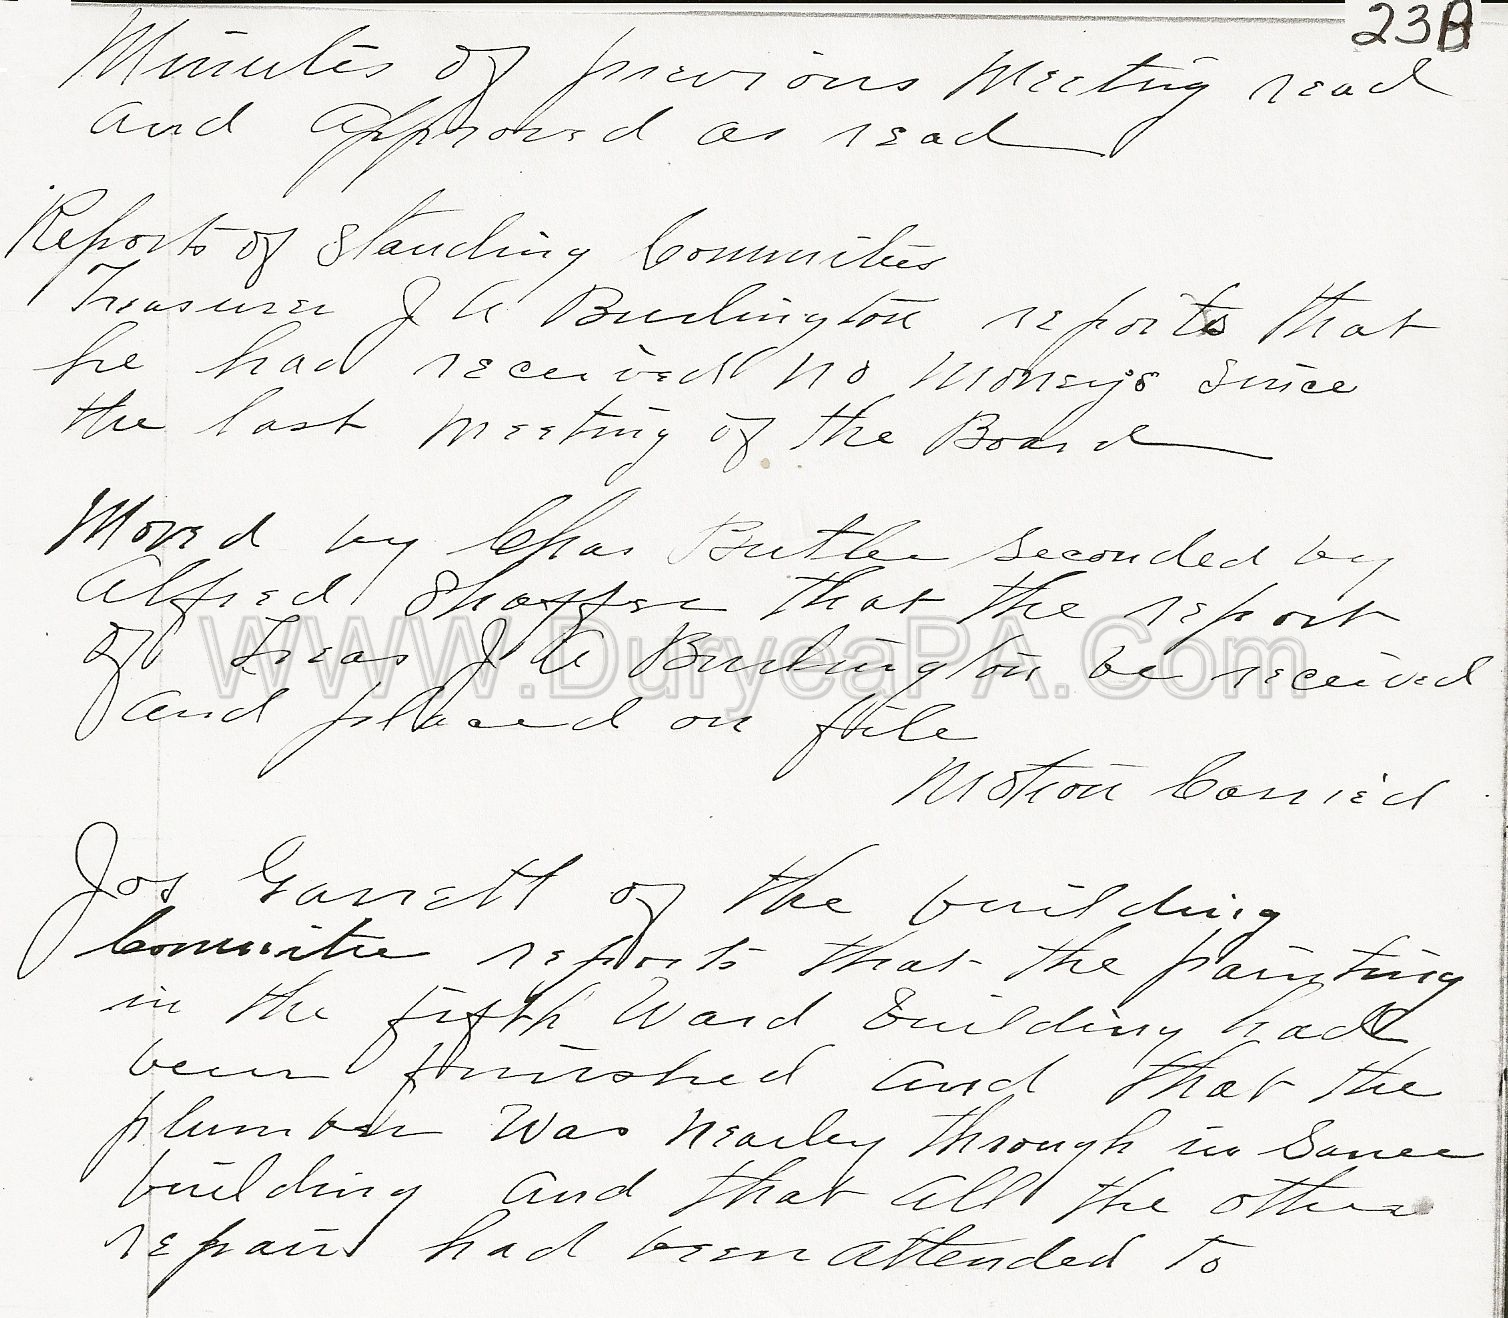 23B
Minutes of previous Meeting read
and approved as read
Reports of Standing Committies
Treasurer J A Burlington reports that
he had received no moneys since
the last meeting of the Board
Moved by Chas Butler seconded by
Alfred Shaffer that the report
of Treas J A Burlington be received
and placed on file
Motion Carried
WWW.DuryeaPA.Com
Jos Garrett of the building
Committee reports that the painting
in the fifth Ward building had
been finished and that the
plumber was nearly through in same
building and that all the other
repairs had been attended to